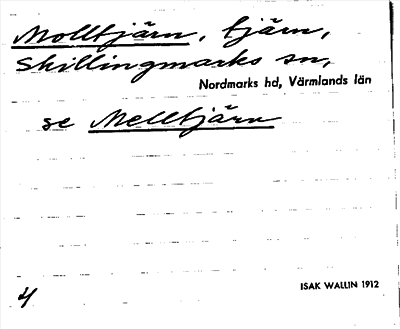 Molltjärn, tjärn,
Skillingmarks sn,
Nordmarks hd, Värmlands län
se Melltjärn
4
ISAK WALLIN 1912